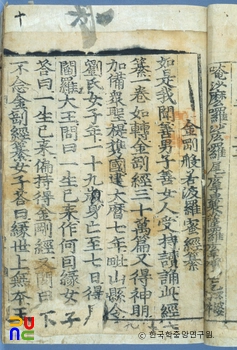 金剛般若波羅蜜經纂
如是我聞善男子善女人受持讀誦此經
纂一卷如轉金剛經三十萬遍又得神明
加備衆聖提携國建大曆七年毗山縣令
劉氏女子年一十九歲身亡至七日得
閻羅大王問曰一生已來作何因緣女子
答曰一生已來偏持得金剛經又問曰
不念金剛經纂女子答曰緣世上無本王
ⓒ한국학중앙연구원